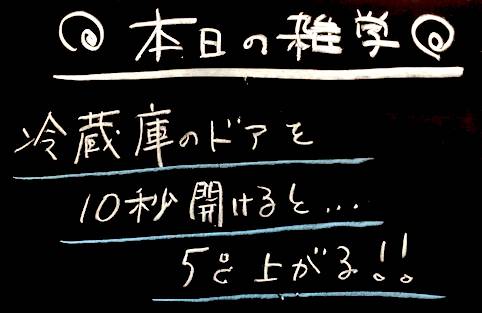 本日の雑学
冷蔵庫のドアを
10秒開けると...
5℃上がる!!